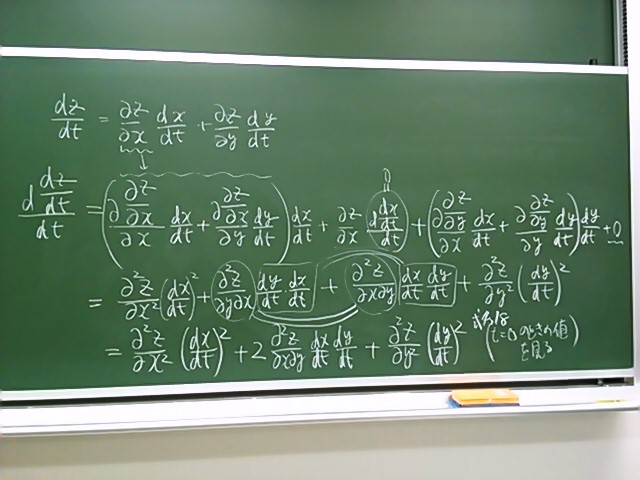 dz/dt = ∂z/∂x dx/dt + ∂z/∂y dy/dt
0
d(dz/dt)/dt = (∂(∂z/∂x)/∂x dx/dt + ∂(∂z/∂x)/∂y dy/dt) dx/dt + ∂z/∂x d(dx/dt)/dt + (∂(∂z/∂y)/∂x dx/dt + ∂(∂z/∂y)/∂y dy/dt) dy/dt + 0
= ∂²z/∂x² (dx/dt)² + ∂²z/∂y∂x dy/dt · dx/dt + ∂²z/∂x∂y dx/dt dy/dt + ∂²z/∂y² (dy/dt)²
= ∂²z/∂x² (dx/dt)² + 2 ∂²z/∂x∂y dx/dt dy/dt + ∂²z/∂y² (dy/dt)²
(t=0 のときの値
を見る)